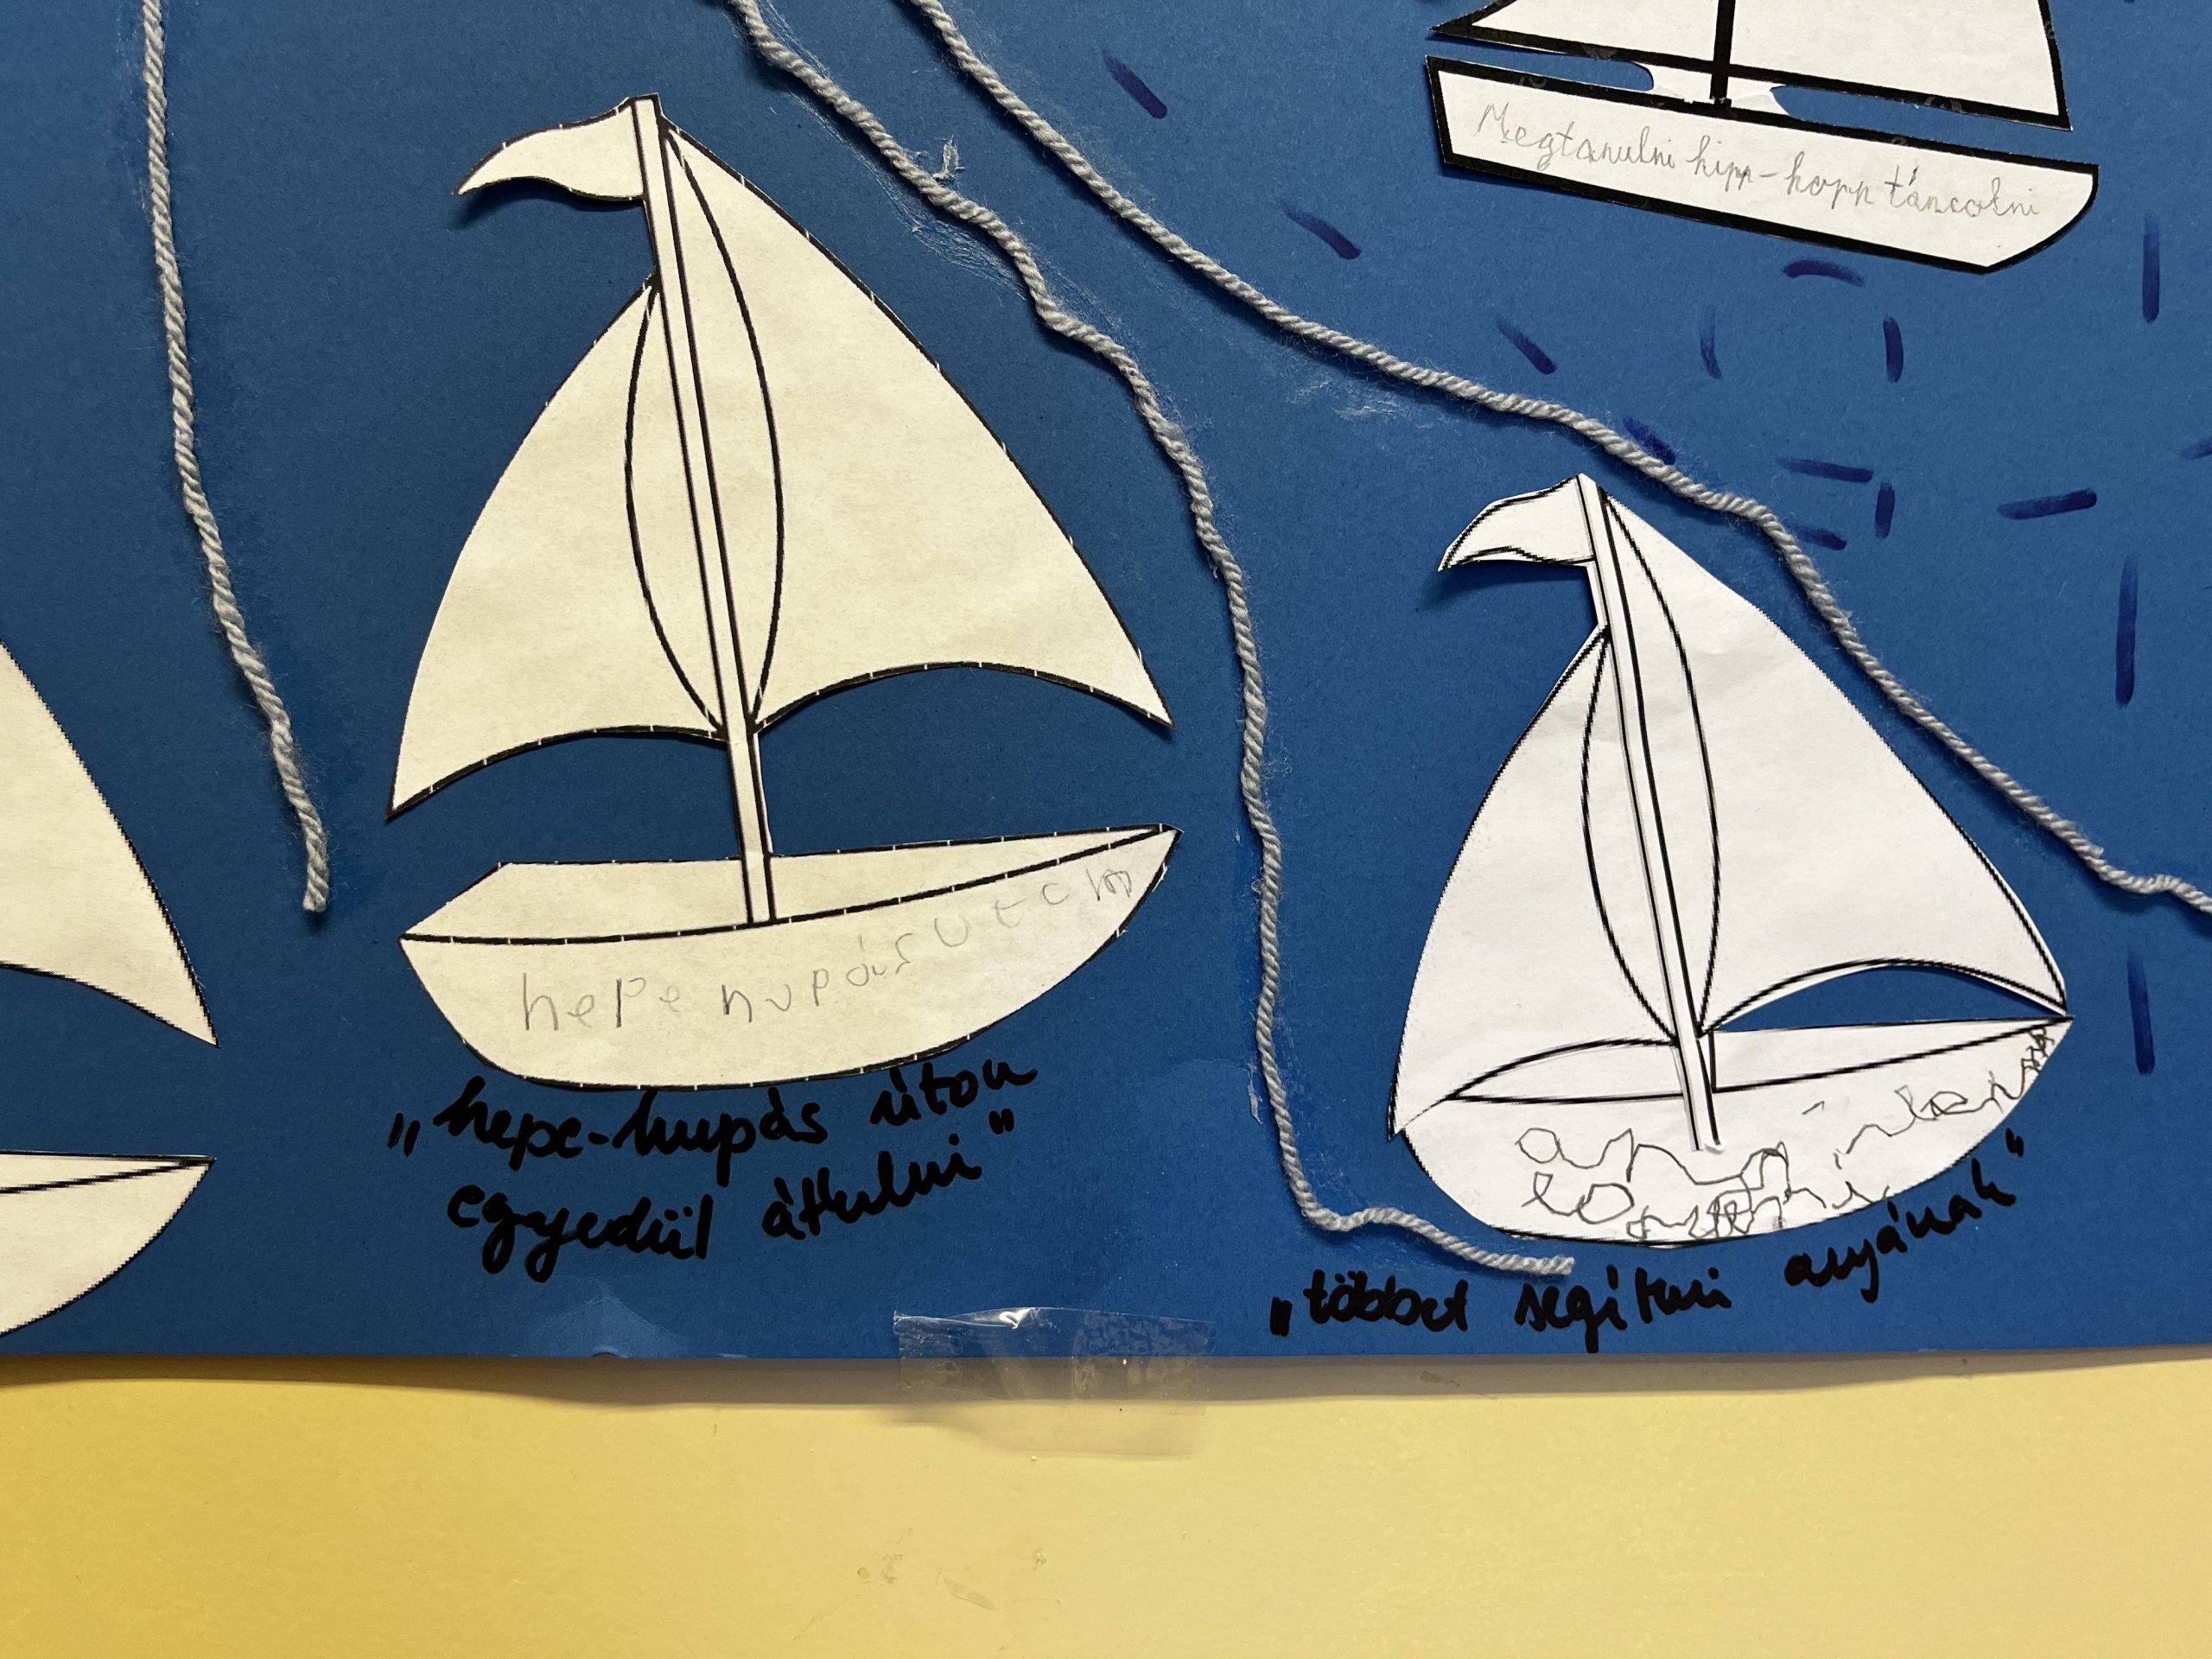 Megtanulni hipp-hopp táncolni
hepe hupás utcn
„hepe-hupás úton
egyedül átkelni”
„többet segíteni anyának”